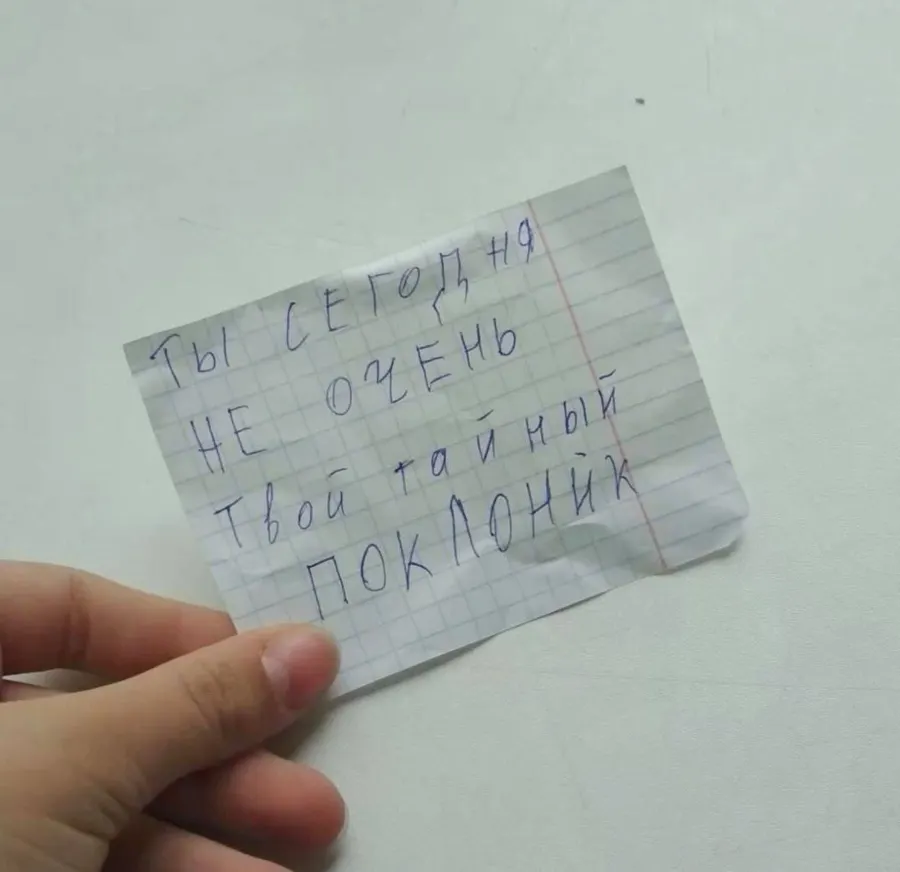 ТЫ СЕГОДНЯ
НЕ ОЧЕНЬ
ТВОЙ ТАЙНЫЙ
ПОКЛОНЙК